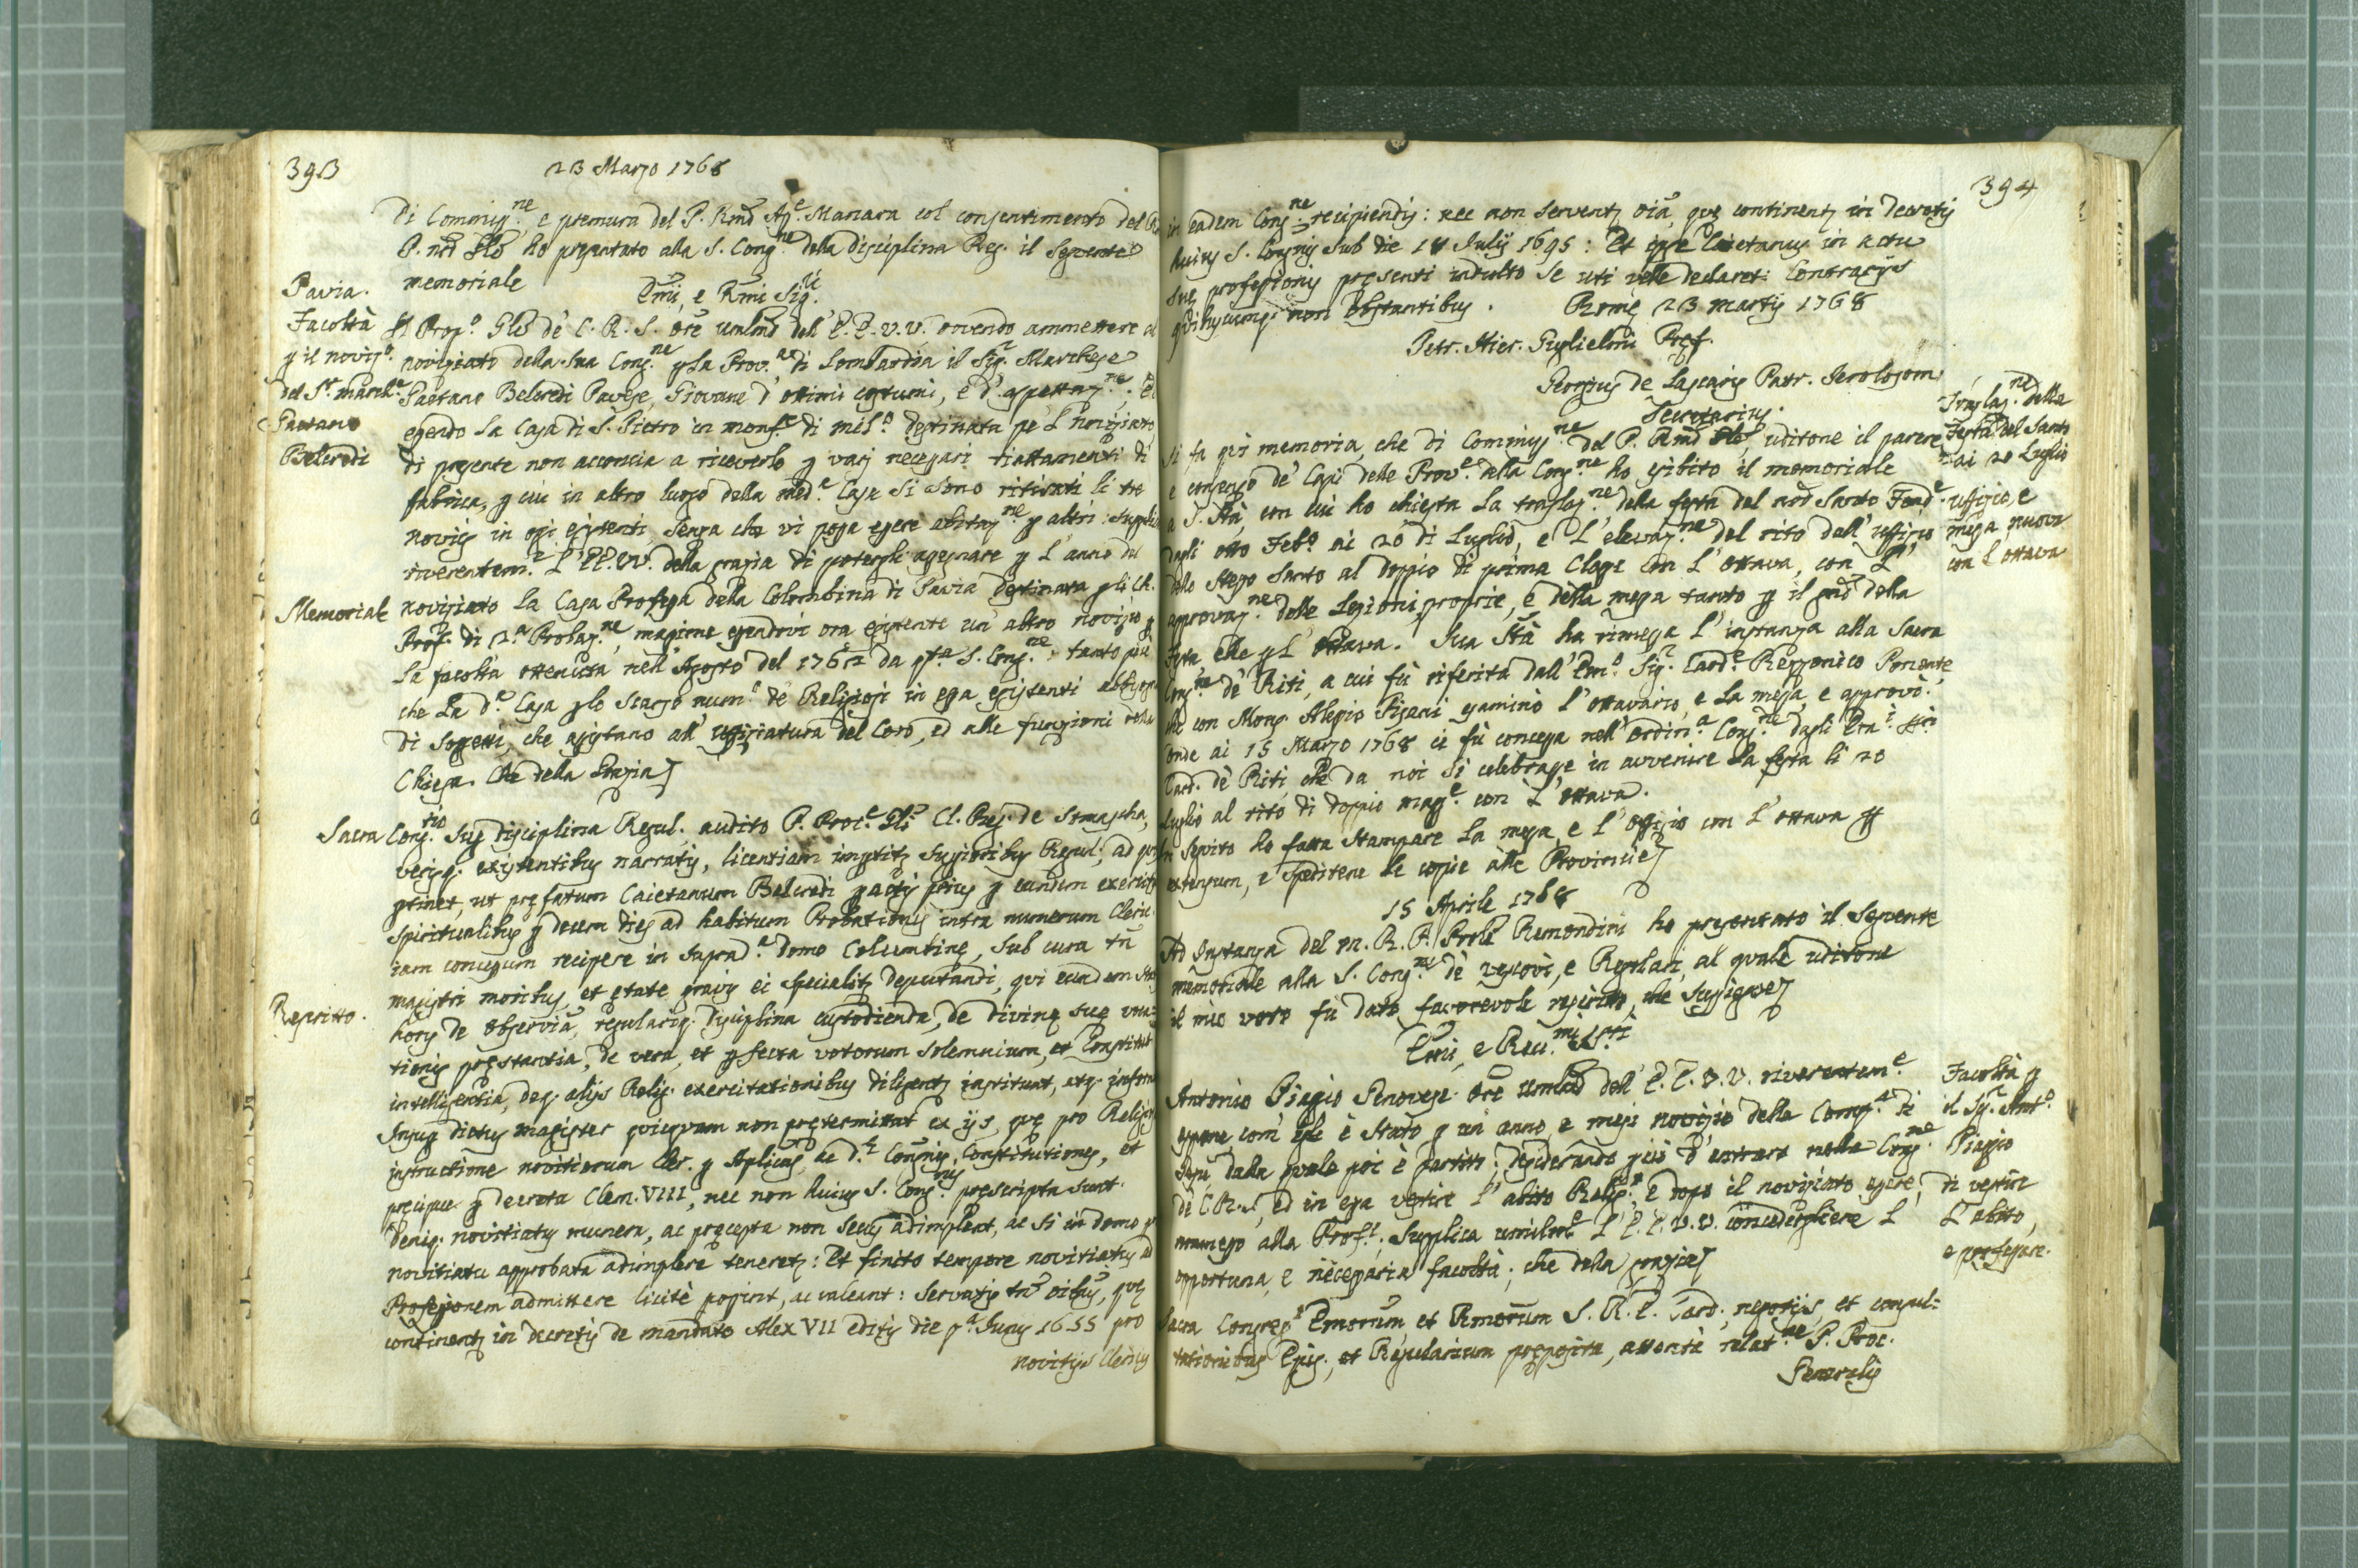 393
23 Marzo 1768
di Commiss.ne e premura del P. Rmõ Ap.e Manara col consentimento del
P. nrõ Glê ho presentato alla S. Cong.ne della disciplina Reg. il Seguente
memoriale
Emi, e Rmi Sig.ri
Pavia.
Facoltà
p il noviz.o
del Sr. march.e
Gaetano
Belcredi
Il Prep.o Glê de' C. R. S. Orê umlmõ dell' E.E.V.V. ovendo ammettere al
noviziato della sua Cong.ne p la Prov.a di Lombardia il Sig.r Marchese
Gaetano Belcredi Pavese, Giovane d' ottimi costumi, e d' aspettaz.ne. E
essendo la Casa di S. Pietro in monf.e di Mil.o destinata pe 'l noviziato
di presente non acconcia a riceverlo p varj necessarj riattamenti di
fabrica, p cui in altro luogo della med.a Casa si sono ritirati li tre
novizj in ogi esistenti, senza che vi possa essere abitaz.ne p altri: Supplica
riverentem.e l' EE.VV. della grazia di potergli assegnare p l' anno del
Memoriale
noviziato la Casa Professa della Colombina di Pavia destinata p li Ch.
Prof. di 2.a Probaz.ne, massime essendovi ora esistente un' altro novizio p
la facoltà ottenuta nell' Agosto del 1762 da q.ta S. Cong.ne, tanto più
che la d.a Casa p lo scarso num.o de' Religiosi in essa esistenti abbisogna
di soggetti, che assistano all' uffiziatura del Coro, ed alle funzioni della
Chiesa. Che della Grazia
Sacra Cong.tio Sup disciplina Regul. audito P. Proc.e Glî Cl. Reg. de Somascha,
verisq. existentibus narratis, licentiam impertit Superioribus Regul; ad
ptinet, ut prefatum Caietanum Belcredi pactis prius p eundem exercitiis
spiritualibus p decem dies ad habitum Probationis intra numerum Cleric.
iam concessum recipere in supra d.a domo Columbine, sub cura tñ
magistri moribus, et etate gravis ei specialiter deputandi, qui eundem
Rescritto.
de observiã, regularisq. disciplina custodienda, de divine sue voca-
tionis prestantia, de vera, et pfecta votorum solemnium, et Constitut
intelligentia, deq. alijs Relig. exercitationibus diligenter instituat, atq. inform
dictus magister quicquam non pretermittat ex ijs, que pro Relig
instructione novitiorum Cler. p Aplicas ac d.e Congnis, Constitutiones, et
precipue p decreta Clem. VIII, nec non huius S. Cong.nis prescripta sunt.
Deniq. novitiatus munera, ac precepta non secus adimpleat, ac si in domo p
novitiatu approbata adimplere teneretur: Et finito tempore novitiatus ad
Professionem admittere licitè possint, ac valeant: servatis tñ oibus, que
continentur in decretis de mandato Alex VII editis die p.a Junij 1655 pro
novitijs Clericis
394
in eadem Cong.ne recipiendis: nec non serventur oiã, que continentur in Decretis
huius S. Congnis sub die 18 July 1695: Et ipse Caietanus in actu
sue professionis presenti indulto se uti velle declaret: Contrarijs
quibuscumq. non obstantibus. Rome 23 martij 1768
Petr. Hier. Guglielmi Pref.
Georgius de Lascaris Patr. Ierolosom
Secretarius.
Traslaz.ne della
Festa del Santo
ai 20 Luglio
uffizio, e
messa nuova
con l' ottava
Si fa qui memoria, che di Commiss.ne del P. Rmõ Glê, uditone il parere
e consenso de' Capi delle Prov.e della Cong.ne ho esibito il memoriale
a S. Stà, con cui ho chiesta la traslaz.ne della festa del nrõ Santo Fond.e
dagli otto Feb.o ai 20 di Luglio, e l' elevaz.ne del rito dell' uffizio
dello stesso Santo al doppio di prima Classe con l' ottava, con l'
approvaz.ne delle Lezioni proprie, e della messa tanto p il gnõ della
festa che p l' ottava. Sua Stà ha rimessa l' instanza alla Sacra
Cong.ne de' Riti, a cui fù riferita dall' Em.o Sig.r Card.e Rezzonico Ponente,
che con Mons. Alessio Pisani esaminò l' ottavario, e la messa, e approvò.
onde ai 15 Marzo 1768 ci fù concessa nell' ordin.a Cong.ne dagli Em.i
Card. de' Riti, che da noi si celebrasse in avvenire la festa li 20
Luglio al rito di doppio magg.e con l' ottava.
In seguito ho fatta stampare la messa e l' offizio con l' ottava p
extensum, e speditene le copie alle Provincie
15 Aprile 1768
Ad Instanza del M. R. P. Prole Remondini ho presentato il seguente
memoriale alla S. Cong.ne de' vescovi, e Regolari, al quale uditone
il mio voto fù dato favorevole rescritto, che sussiegue
Emi, e Rev.mi Sri
Facoltà p
il Sig.r Ant.o
Piagio
di vestire
l' abito,
e professare.
Antonio Piagio Genovese Orê umlmõ dell' E.E.V.V. riverentem.e
espone com' egli è stato p un' anno, e mesi novizio della Comp.a di
Gesù, dalla quale poi è partito: desiderando perciò d' entrare nella Cong.ne
de C.R.S., ed in essa vestire l' abito Relig.o e dopo il noviziato essere
ammesso alla Prof.e, Supplica umilm.e l' E.E.V.V. concedergliene l'
opportuna, e necessaria facoltà; che della grazia
Sacra Congreg.o Emorum et Rmorum S. R. E. Card. negotijs, et consul-
tationibus Epis., et Regularium preposita, attenta relat.ne P. Proc.
Generalis